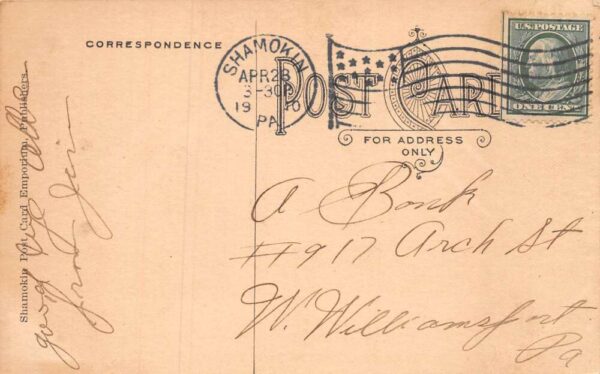 CORRESPONDENCE
SHAMOKIN
APR 28
3-30P
1910
PA
POST CARD
U.S. POSTAGE
ONE CENT
FOR ADDRESS
ONLY
A Bonk
#917 Arch St
W. Williamsport
Pa
good bye all
from Jim
Shamokin Post Card Emporium, Publishers.